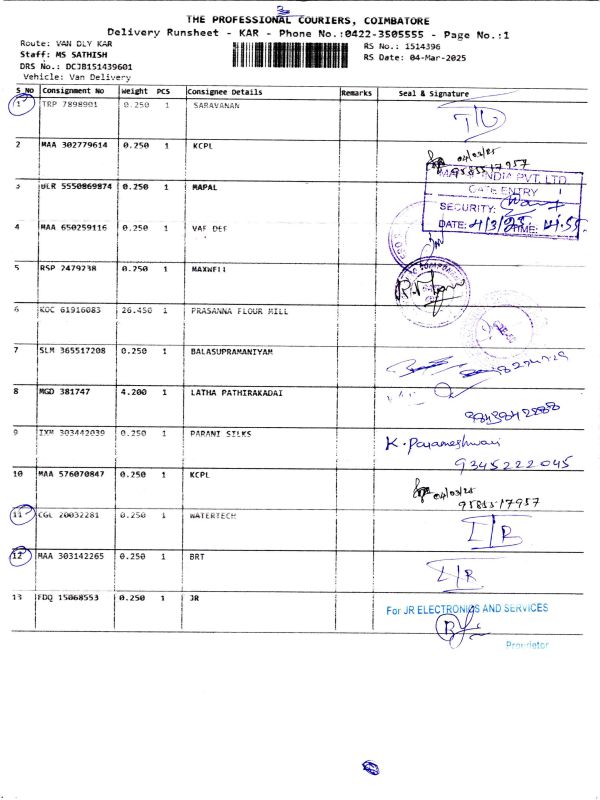 3
THE PROFESSIONAL COURIERS, COIMBATORE
Delivery Runsheet - KAR - Phone No.:0422-3505555 - Page No.:1
Route: VAN DLY KAR RS No.: 1514396
Staff: MS SATHISH RS Date: 04-Mar-2025
DRS No.: DCJB151439601
Vehicle: Van Delivery
S No Consignment No Weight PCS Consignee Details Remarks Seal & Signature
1 TRP 7898901 0.250 1 SARAVANAN
2 MAA 302779614 0.250 1 KCPL 04/03/25
9585517957
3 BLR 5550869874 0.250 1 MAPAL
INDIA PVT. LTD
GATE ENTRY
SECURITY:
DATE: 4/3/25 TIME: 14:55
4 MAA 650259116 0.250 1 VAF DEF
5 RSP 2479238 0.250 1 MAXWELL
6 KOC 61916083 26.450 1 PRASANNA FLOUR MILL
7 SLM 365517208 0.250 1 BALASUPRAMANIYAM
8 MGD 381747 4.200 1 LATHA PATHIRAKADAI
9843842888
9 IXM 303442039 0.250 1 PARANI SILKS K. Parameshwari
9345222045
10 MAA 576070847 0.250 1 KCPL 04/03/25
9585517957
11 CGL 20032281 0.250 1 WATERTECH I/R
12 MAA 303142265 0.250 1 BRT I/R
13 FDQ 15068553 0.250 1 JR For JR ELECTRONICS AND SERVICES
Proprietor